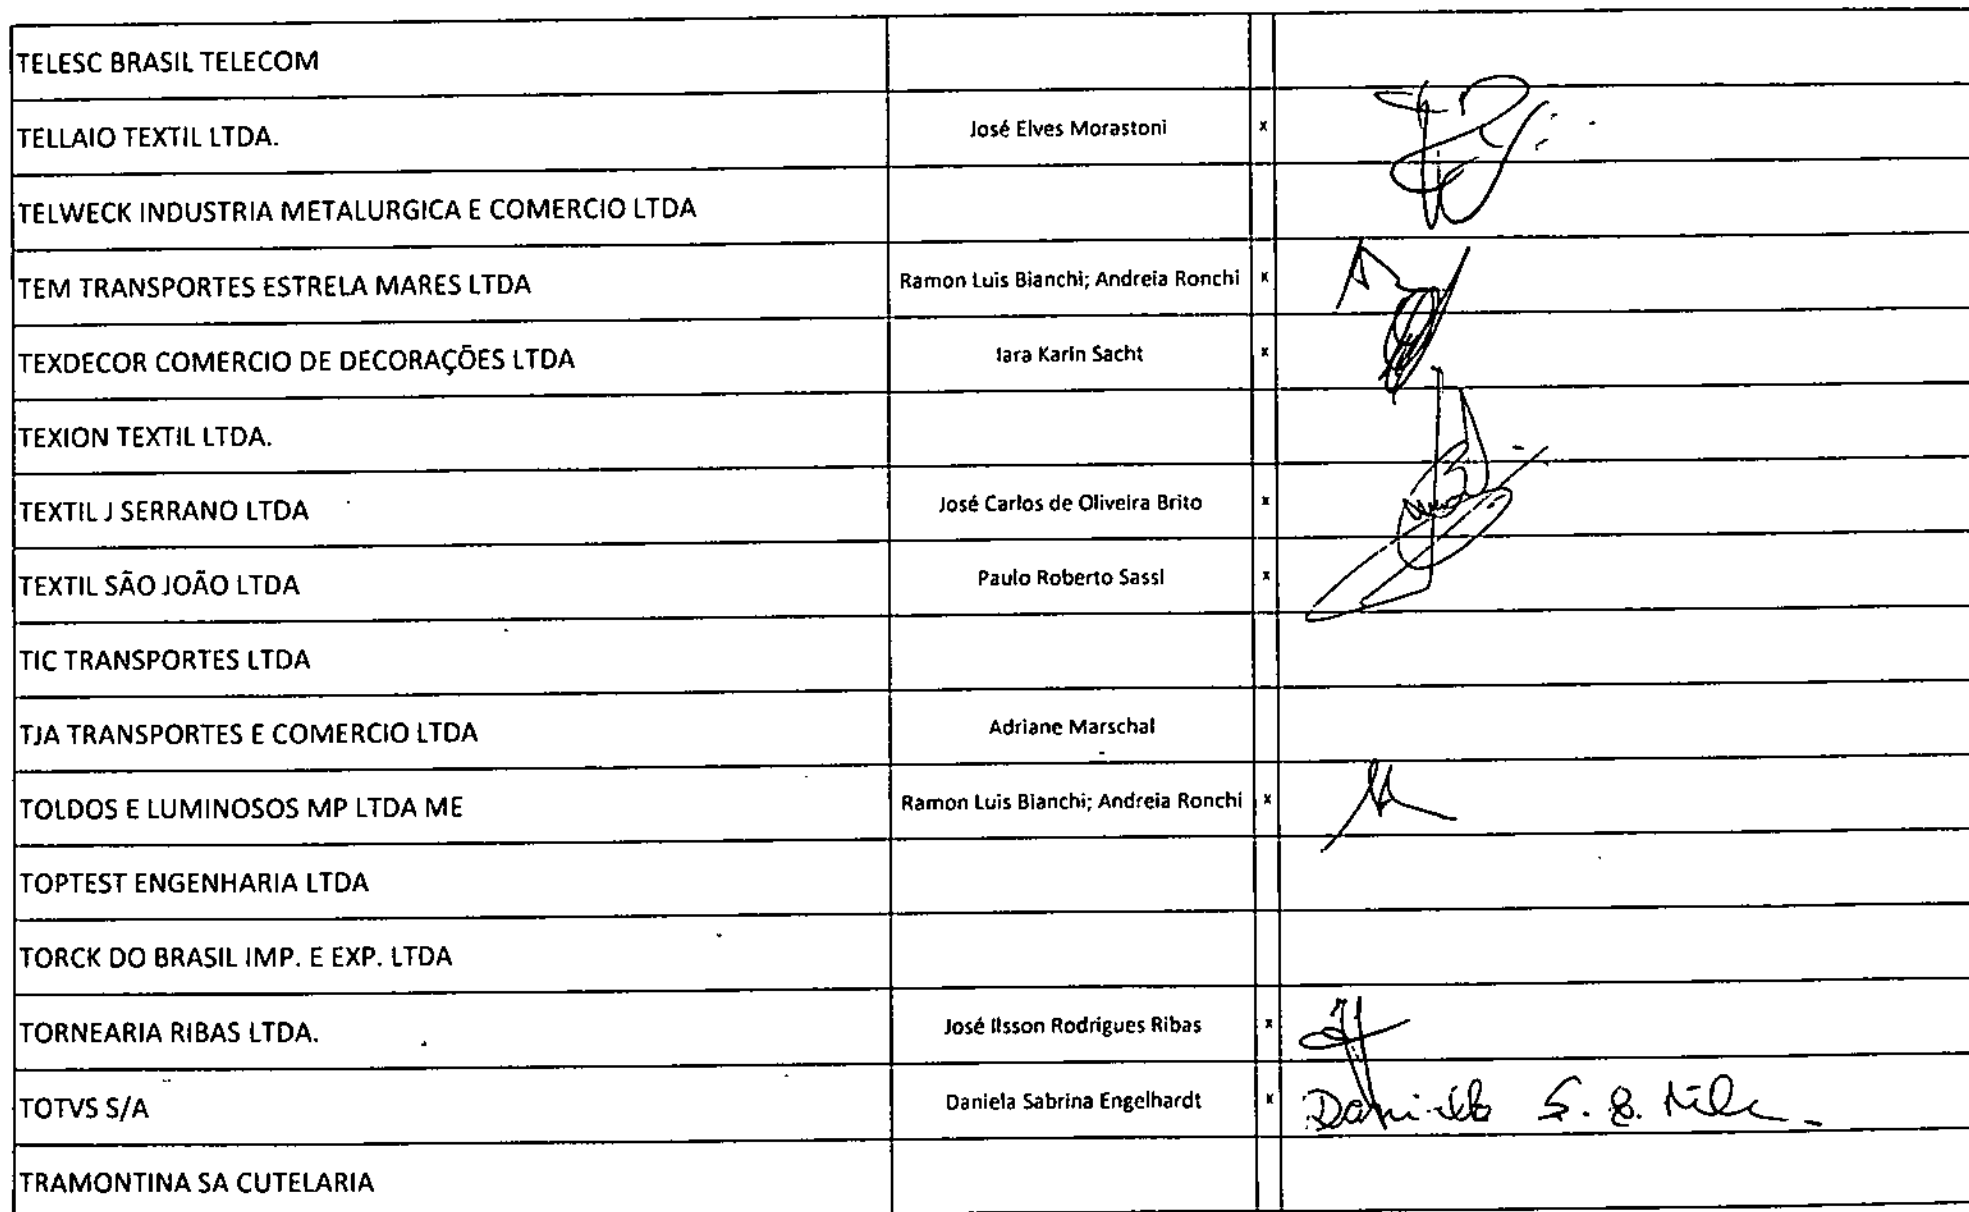 TELESC BRASIL TELECOM
TELLAIO TEXTIL LTDA. José Elves Morastoni x
TELWECK INDUSTRIA METALURGICA E COMERCIO LTDA
TEM TRANSPORTES ESTRELA MARES LTDA Ramon Luis Bianchi; Andreia Ronchi x
TEXDECOR COMERCIO DE DECORAÇÕES LTDA Iara Karin Sacht x
TEXION TEXTIL LTDA.
TEXTIL J SERRANO LTDA José Carlos de Oliveira Brito x
TEXTIL SÃO JOÃO LTDA Paulo Roberto Sassi x
TIC TRANSPORTES LTDA
TJA TRANSPORTES E COMERCIO LTDA Adriane Marschal
TOLDOS E LUMINOSOS MP LTDA ME Ramon Luis Bianchi; Andreia Ronchi x
TOPTEST ENGENHARIA LTDA
TORCK DO BRASIL IMP. E EXP. LTDA
TORNEARIA RIBAS LTDA. José Ilsson Rodrigues Ribas x
TOTVS S/A Daniela Sabrina Engelhardt x
TRAMONTINA SA CUTELARIA